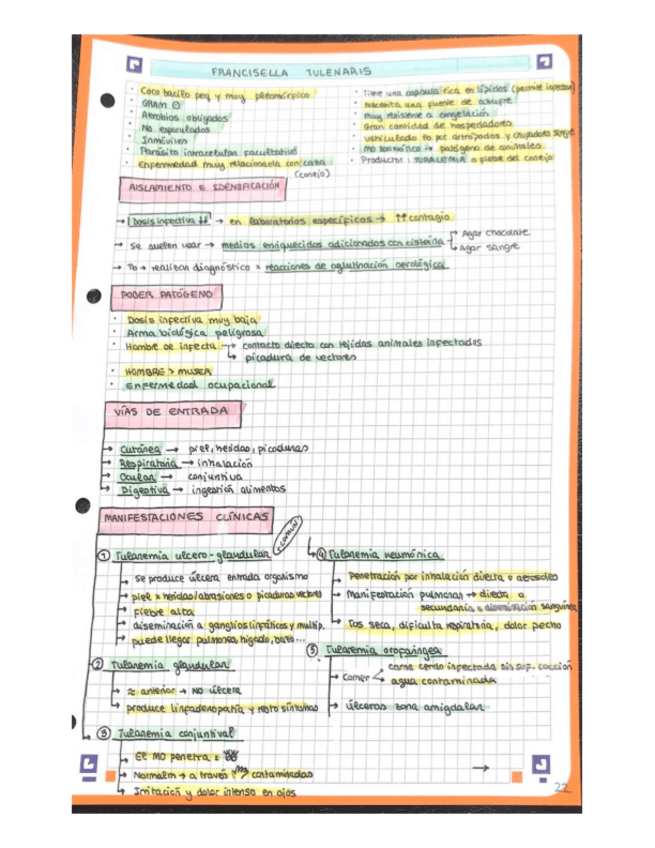 FRANCISELLA TULENARIS
· Coco bacilo peq y muy pleomórfico
· GRAM ⊖
· Aerobios obligados
· No esporulados
· Inmóviles
· Parásito intracelular facultativo
· Enfermedad muy relacionada con caza
(conejo)
· Tiene una capsula rica en lípidos (permite infección)
· Necesita una fuente de azufre
· Muy resistente a congelación
· Gran cantidad de hospedadores
· Vehiculado tb por artrópodos y chupadores sangre
· MO zoonótico → patógeno de animales
· Productor: TURALEMIA o fiebre del conejo
AISLAMIENTO E IDENTIFICACIÓN
→ Dosis infectiva ↓↓ → en laboratorios específicos → ↑↑ contagio
→ Se suelen usar → medios enriquecidos adicionados con cisteína
→ Agar chocolate
→ Agar sangre
→ Tb → realizan diagnóstico x reacciones de aglutinación serológica
PODER PATÓGENO
· Dosis infectiva muy baja
· Arma biológica peligrosa
· Hombre se infecta → contacto directo con tejidos animales infectados
↳ picadura de vectores
· HOMBRE > MUJER
· Enfermedad ocupacional
VÍAS DE ENTRADA
→ Cutánea → piel, heridas, picaduras
→ Respiratoria → inhalación
→ Ocular → conjuntiva
→ Digestiva → ingestión alimentos
MANIFESTACIONES CLÍNICAS
① Tularemia ulcero-glandular
+común
→ se produce úlcera entrada organismo
→ piel x heridas/abrasiones o picaduras vectores
→ fiebre alta
→ diseminación a ganglios linfáticos y multip.
→ puede llegar pulmones, hígado, bazo...
② Tularemia glandular
→ ≈ anterior → NO úlcera
→ produce linfadenopatía y resto síntomas
③ Tularemia conjuntival
→ El MO penetra x
→ Normalm → a través contaminadas
→ Irritación y dolor intenso en ojos
④ Tularemia neumónica
→ Penetración por inhalación directa o aerosoles
→ Manifestación pulmonar → directa o
secundaria x diseminación sanguínea
→ Tos seca, dificulta respiratoria, dolor pecho
⑤ Tularemia orofaríngea
→ Comer
carne cerdo infectada sin suf. cocción
agua contaminada
→ Úlceras zona amigdalar
→
22